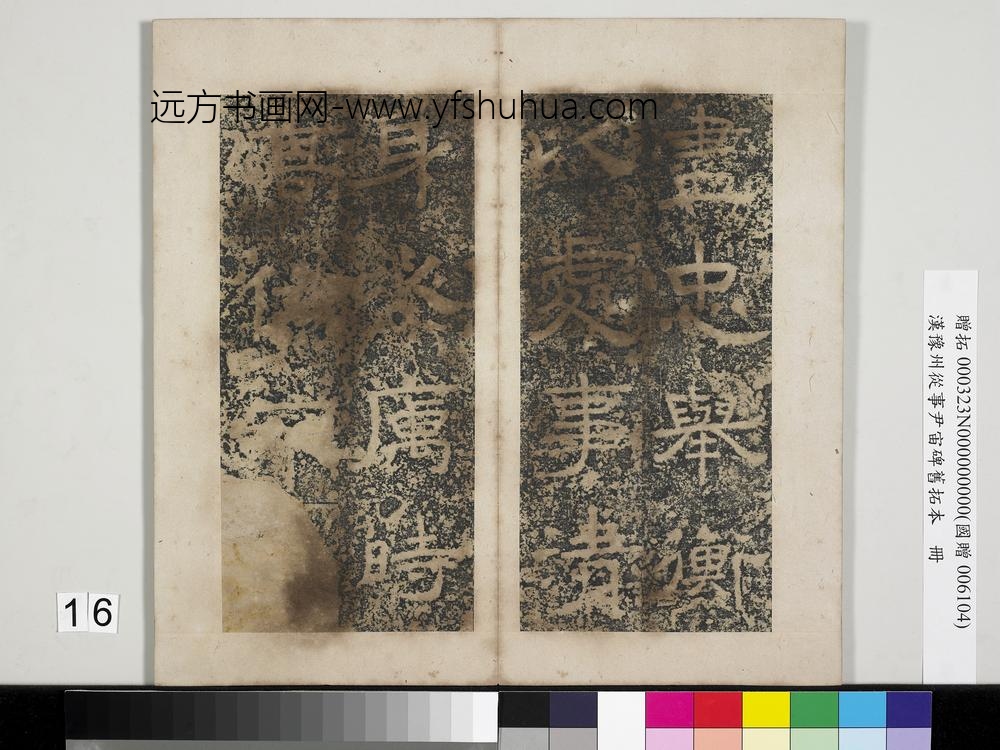 远方书画网-www.yfshuhua.com
盡忠舉衡
以處事清
身以厲時
高位不
贈拓 000323N000000000(國贈 006104)
漢豫州從事尹宙碑舊拓本 冊
16